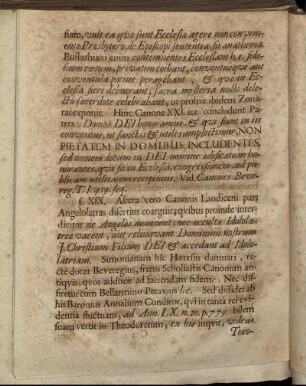 fuso, vult ea quæ sunt Ecclesiæ agere non conveni-
ente Presbytero, de Episcopi sententia, sit anathema.
Eustathiani enim contemnentes Ecclesiam h. e. fide-
lium cœtum, privatim coibant, conventusque aut
conventicula peragebant, & quæ in Ec-
clesia fieri debuerant, sacra mysteria nullo dele-
cto sacerdote celebrabant, ut prolixe ibidem Zona-
ras exponit. Hinc Canone XX. ita concludunt Pa-
tres: Domos DEI honoramus, & qui sunt in iis
conventus, ut sanctos & utiles amplectimur, NON
PIETATEM IN DOMIBUS INCLUDENTES,
sed omnem locum in DEI nomine ædificatum ho-
norantes, quæ fit in Ecclesia, congressionem ad pu-
blicam utilit. Vid. Canones Beve-
reg. T.
§ XIX. Altera vero Canonis Laodiceni pars
Angelolatras disertim coarguit; quibus proinde inter-
dicitur ne Angelos nominent, nec occultæ Idolola-
triæ vacent, aut relinquant Dominum nostrum
J. Christum Filium DEI & accedant ad Idolo-
latriam. Simonianam hic Hæresin damnari, re-
cte docet Beveregius, fretus Scholiastis Canonum an-
tiquis, quos adducit ad faciendam fidem. Nec dif-
fitetur cum Bellarmino Petavius l. c. Sed dissidet ab
his Baronius Annalium Conditor, qui in tanta rei evi-
dentia fluctuans, ad Ann. LX. n. 20. p. 779. bilem
suam vertit in Theodoretum, ex his inquit,
Theo-